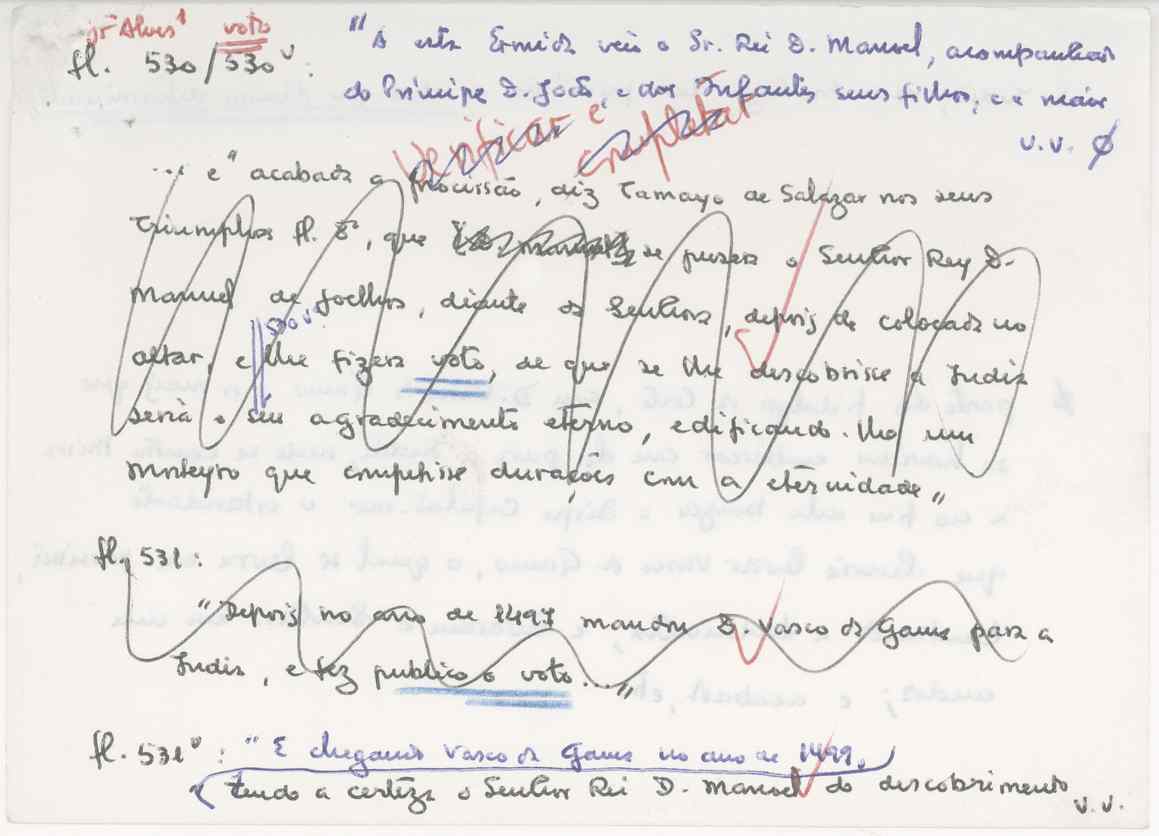 jrª Alves¹ voto
fl. 530/530ᵛ:
"A esta Ermida veio o Sr. Rei D. Manoel, acompanhado
do Principe D. João, e dos Infantes seus filhos, e a maior
v.v. ϕ
Verificar e completar
... e "acabada a procissão, diz Tamayo de Salazar nos seus
Triumphos fl. 8, que se puzera o Senhor Rey D.
Manuel de Joelhos, diante da Senhora, depois de colocada no
530 vº
altar, e lhe fizera voto, de que se lhe descobrisse a India
seria o seu agradecimento eterno, edificando-lho um
mosteyro que competisse durações com a eternidade"
fl. 531:
"Depois no ano de 1497 mandou D. Vasco da Gama para a
India, e fez publico o voto..."
fl. 531ᵛ: "E chegando Vasco da Gama no ano de 1499,
tendo a certeza o Senhor Rei D. Manoel do descobrimento
v.v.